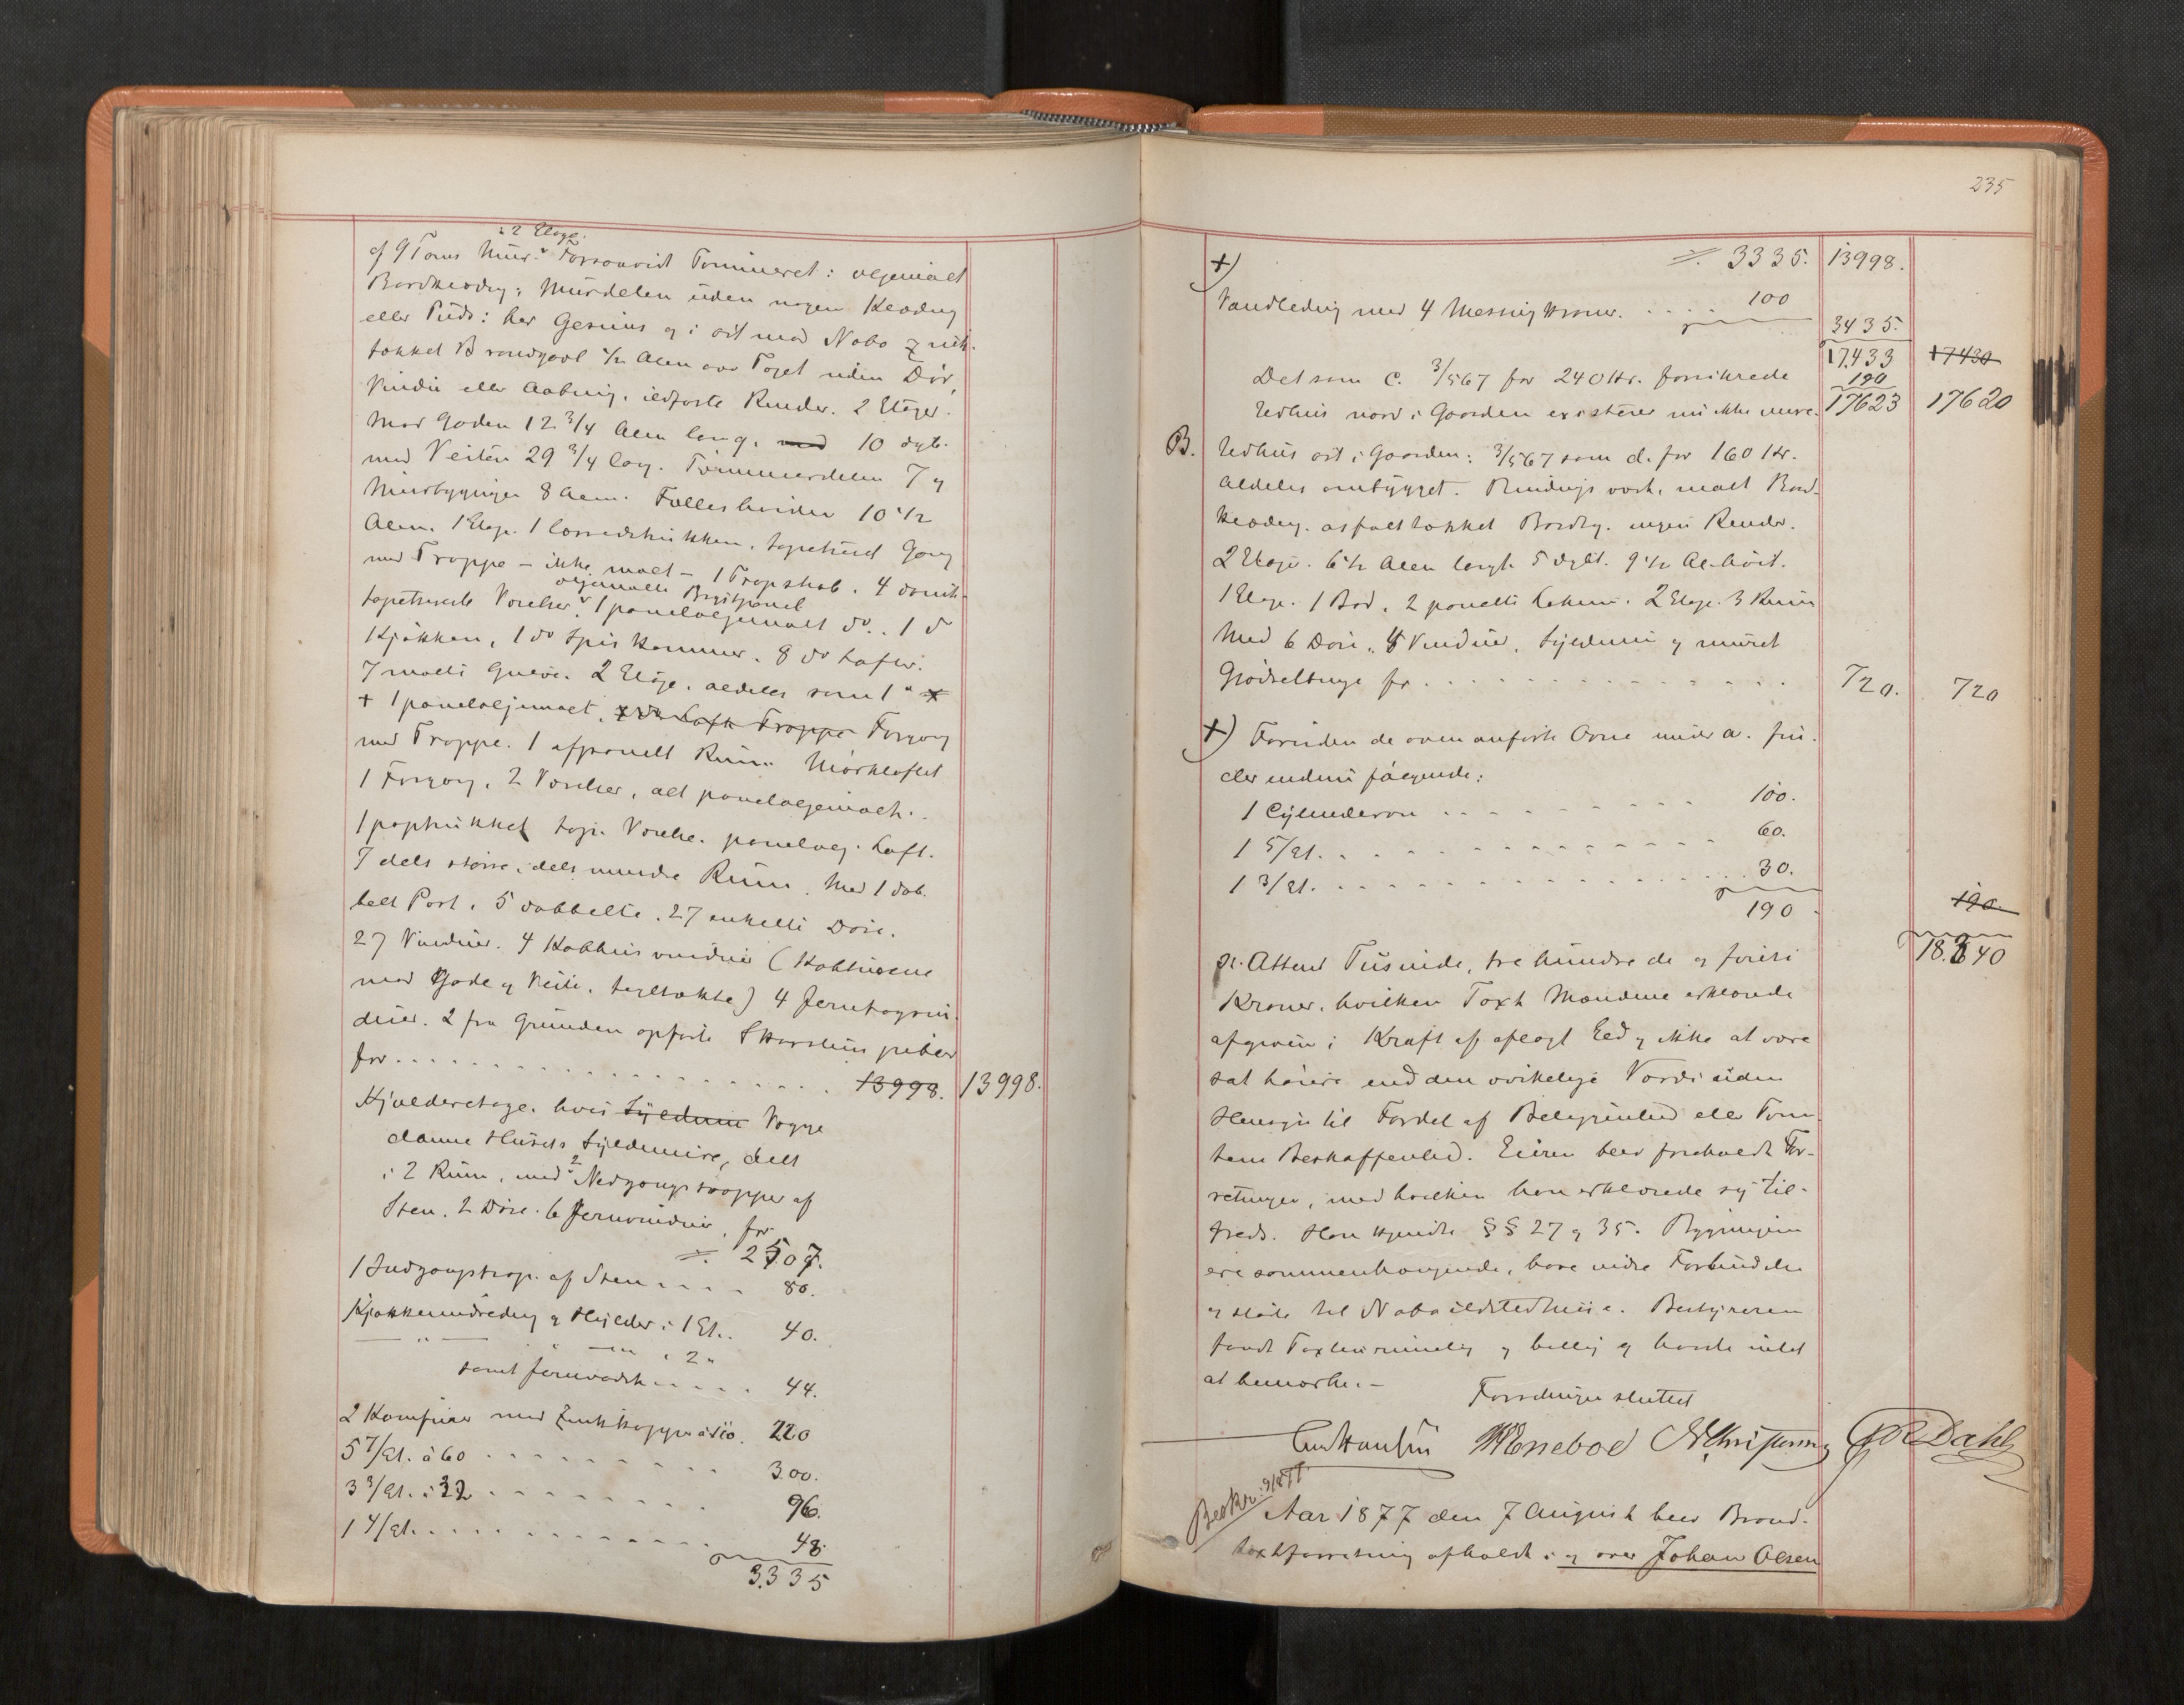 i 2 Etage.
af 9 Toms Muur. Forresvrigt Tømmeret: oljemalt
Bordklædng; Muurdelen uden nogen Klædng
eller Puds: har Gesims og i ost mod Nabo
tækket Brandgavl 1/2 Alen over Taget uden Dør,
Vindue eller Aabning. ildfaste Render. 2 Etager.
Mod Gaden 12 3/4 Alen lang. 10 dyb.
mod Veiten 29 3/4 lang. Tømmerdelen 7 og
Muurbygningen 8 Alen. Fælleshøiden 10 1/2
Alen. 1 Etage. 1 tapetseret Gang
med Trappe - ikke malt - 1 Trapskab. 4
oljemalte Brystpanel
tapetserede Værelser. 1 paneloljemalt do. 1 d
Kjøkken, 1 do Spiskammer. 8 do Lofter.
7 malte Gulve. 2 Etage. aldeles som 1 " x
+ 1 paneloljemalt, x do Loft Trappe Forgang
med Trappe. 1 afpanelt Rum. Mørkloftet
1 Forgang, 2 Værelser, alt paneloljemalt.
1 paptrukket tap. Værelse. paneloljem. Loft.
7 dels større, dels mindre Rum. Med 1 dob-
belt Port. 5 dobbelte. 27 enkelte Døre.
27 Vinduer. 4 Kobhusvinduer (Kobhusene
mod Gade og Veite, tegltækte) 4 Jerntagvin-
duer. 2 fra Grunden opførte Skorstenspiber
for . . . . . . 13998. 13998.
Kjælderetage, hvis Syldmuur Vægge
danne Husets Syldmure, delt
i 2 Rum, med 2 Nedgangstrapper af
Sten. 2 Døre. 6 Jernvinduer, for
2507.
1 Indgangstrap. af Sten . . . . 80.
Kjøkkenindredng og Hylder i 1 Et. . 40.
— " — " — i 2 "
samt Jernvadsk . . . . 44.
2 Komfurer med Zinkkapper à 110. 220
5 7/Et. à 60 . . . . . . 300.
3 3/Et. à 32 . . . . . . 96.
1 4/Et. . . . . . . 48.
3335
235
+) 3335. 13998.
Vandledng med 4 Messing Kraner. . . . . 100
3435.
17433 17430
190
17623 17620
Det som C. 3/567 for 240 Kr. forsikrede
Udhus nord i Gaarden existerer nu ikke mere.
B. Udhus ost i Gaarden: 3/567 som d. for 160 Kr.
aldeles ombygget. Bindingsværk, malt Bord-
klædng. asfalttækket Bordtag. ingen Render.
2 Etager. 6 1/2 Alen langt. 5 dybt. 9 1/2 Al. høit.
1 Etage. 1 Bod, 2 panelte Lokum. 2 Etage. 3 Rum
Med 6 Døre, 4 Vinduer, Syldmuur og muret
Gjødselbinge for . . . . . . 720. 720
+) Foruden de ovenanførte Ovne under a. fin-
der endnu følgende:
1 Cylinderovn . . . . . . 100.
1 5/Et. . . . . . . 60.
1 3/Et. . . . . . . 30.
190 190.
18.340
Attend Tusinde, tre hundrede og førti
Kroner, hvilken Taxt Mændene erklærede
afgiven i Kraft af aflagt Eed og ikke at være
sat høiere end den virkelige Værdi uden
Hensyn til Fordel af Beliggenhed eller Tom-
tens Beskaffenhed. Eieren blev foreholdt For-
retningen, med hvilken han erklærede sig til-
freds. Han kjendte §§ 27 og 35. Bygningerne
ere sammenhængende, have indre Forbindelse
og støde til Nabo ildstedhuse. Bestyreren
fandt Taxten rimelig og billig og havde intet
at bemærke. -
Forretningen sluttet
Dahl
Aar 1877 den 7 August blev Brand-
taxtforretning afholdt i og over Johan Olsen